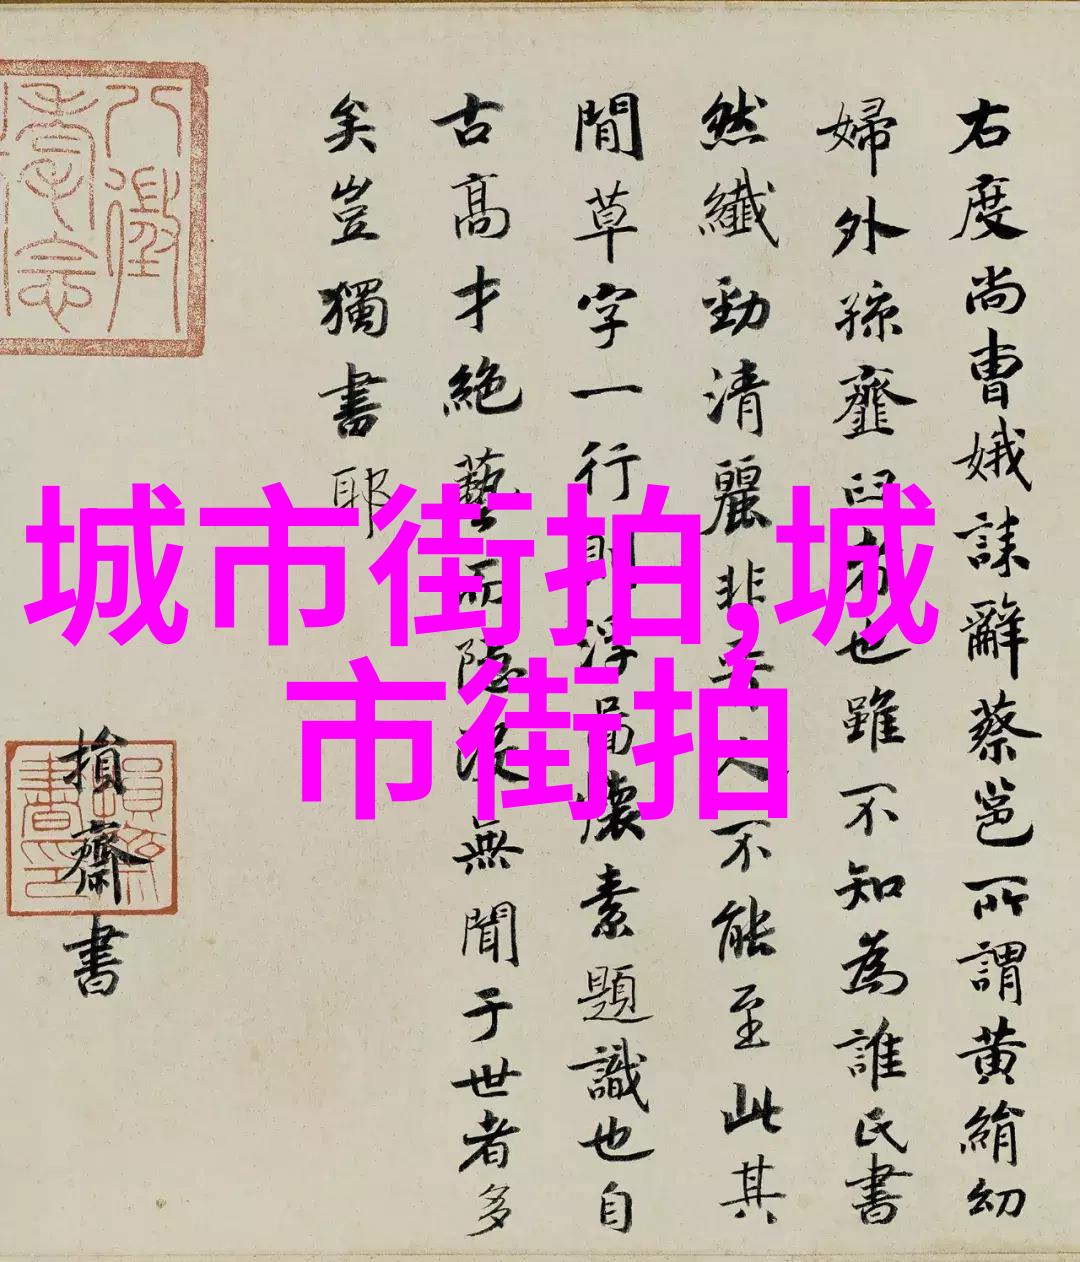 右度尚曹娥誄辭蔡邕所謂黃絹幼
婦外孫虀臼者也雖不知為誰氏書
然纖勁清麗非晉人不能至此其
閒草字一行則浮屠懷素題識也自
古高才絕藝而隱沒無聞于世者多
矣豈獨書耶
損齋書
八徵
耄念
損齋
書印
城市街拍,城
市街拍